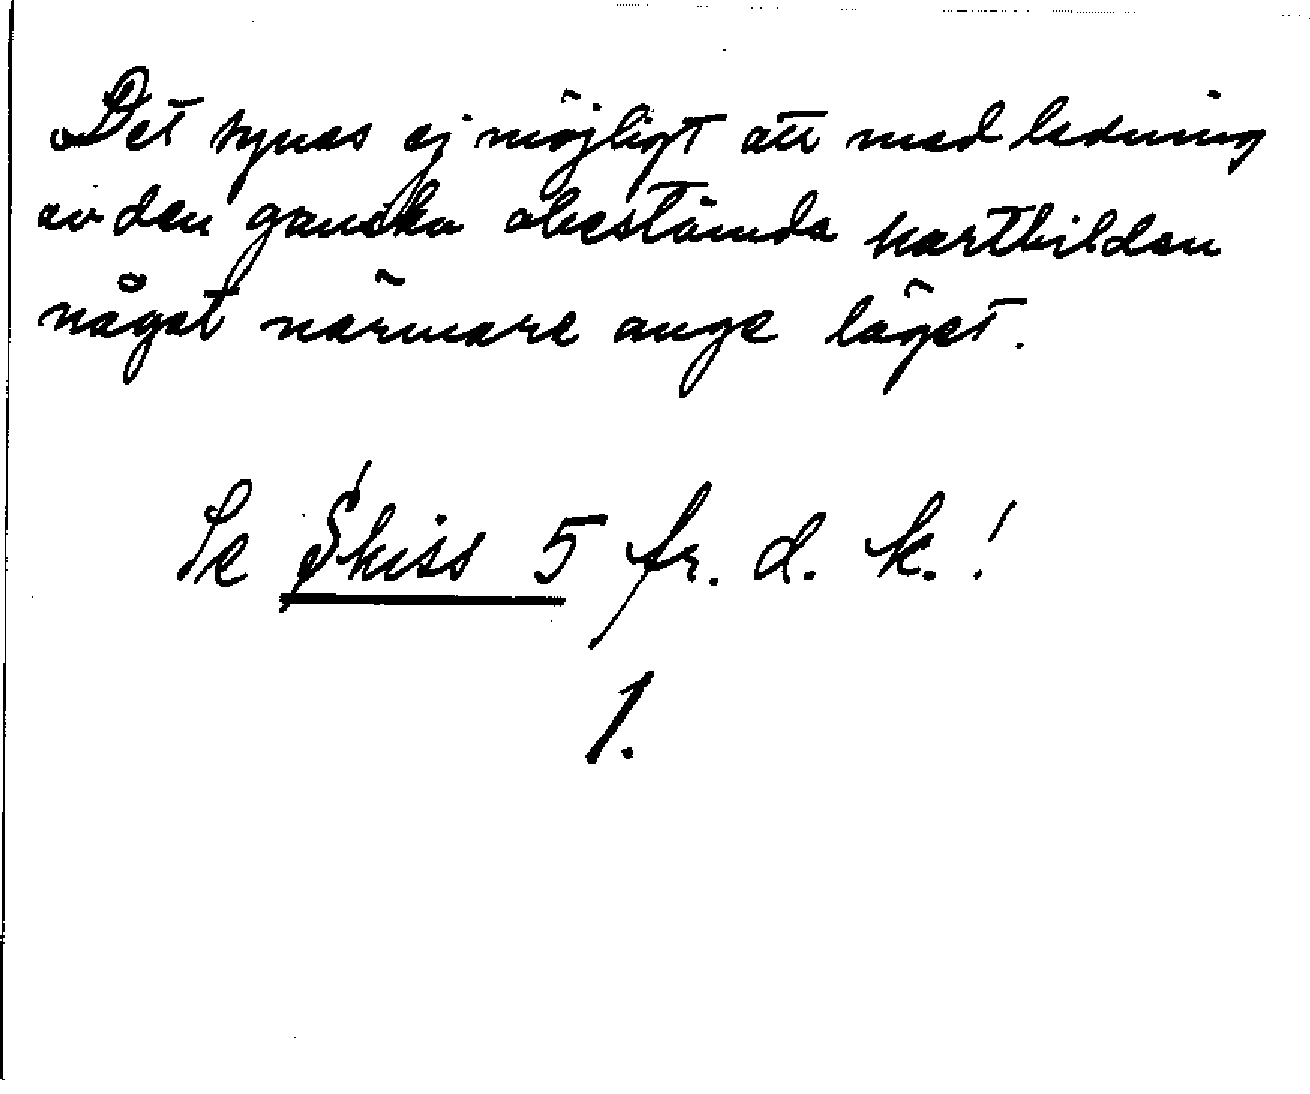 Det synes ej möjligt att med ledning
av den ganska obestämda kartbilden
något närmare ange läget.
Se Skiss 5 fr. d. k.!
1.